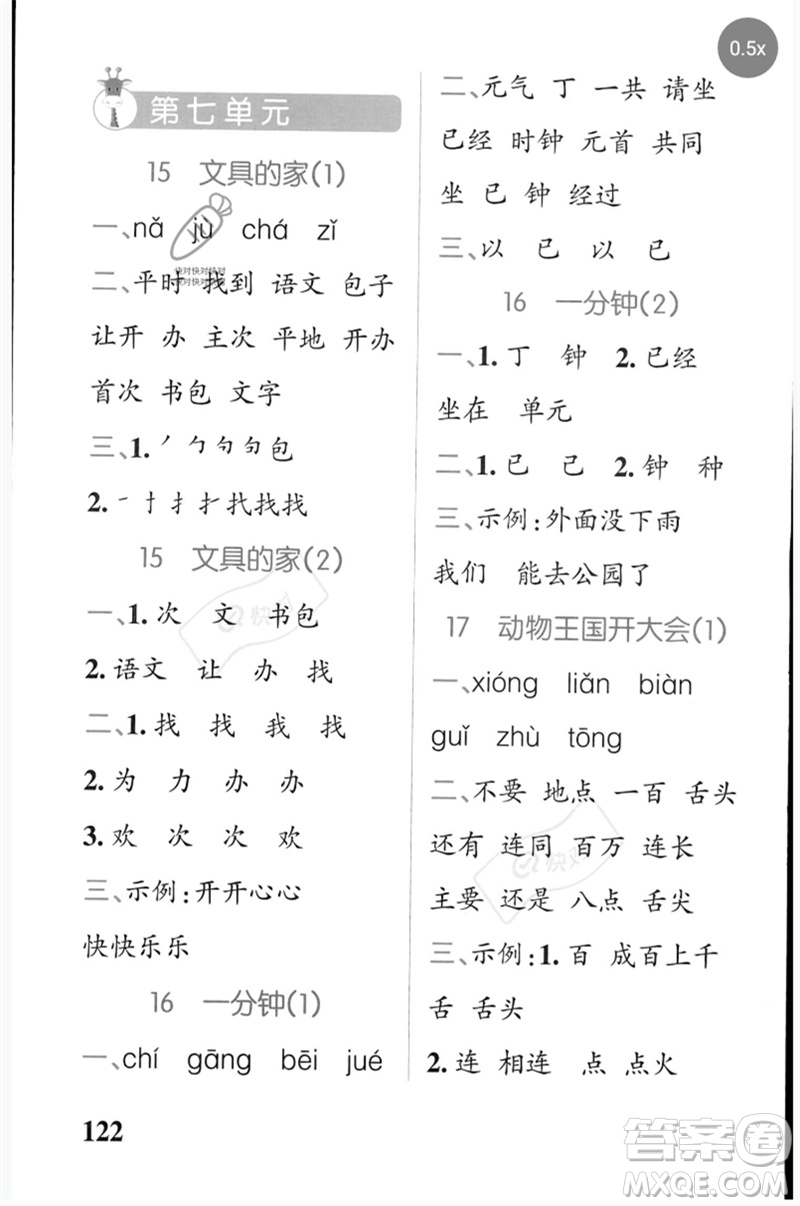 0.5x
第七单元
15 文具的家(1)
一、nǎ jù chá zǐ
快对快对快对
快对快对快对
二、平时 找到 语文 包子
让开 办 主次 平地 开办
首次 书包 文字
三、1.丿 勹 勺 匀 包
2.一 十 扌 扌 找 找 找
15 文具的家(2)
一、1.次 文 书包
2.语文 让 办 找
二、1.找 找 我 找
2.为 力 办 办
3.欢 次 次 欢
三、示例:开开心心
快快乐乐
16 一分钟(1)
一、chí gāng bēi jué
122
二、元气 丁 一共 请坐
已经 时钟 元首 共同
坐 已 钟 经过
三、以 已 以 已
16 一分钟(2)
一、1.丁 钟 2.已经
坐在 单元
二、1.已 己 2.钟 种
三、示例:外面没下雨
我们 能去公园了
17 动物王国开大会(1)
一、xióng liǎn biàn
guǐ zhù tōng
二、不要 地点 一百 舌头
还有 连同 百万 连长
主要 还是 八点 舌尖
三、示例:1.百 成百上千
舌 舌头
2.连 相连 点 点火
快对
快对
答案圈
MXQE.COM